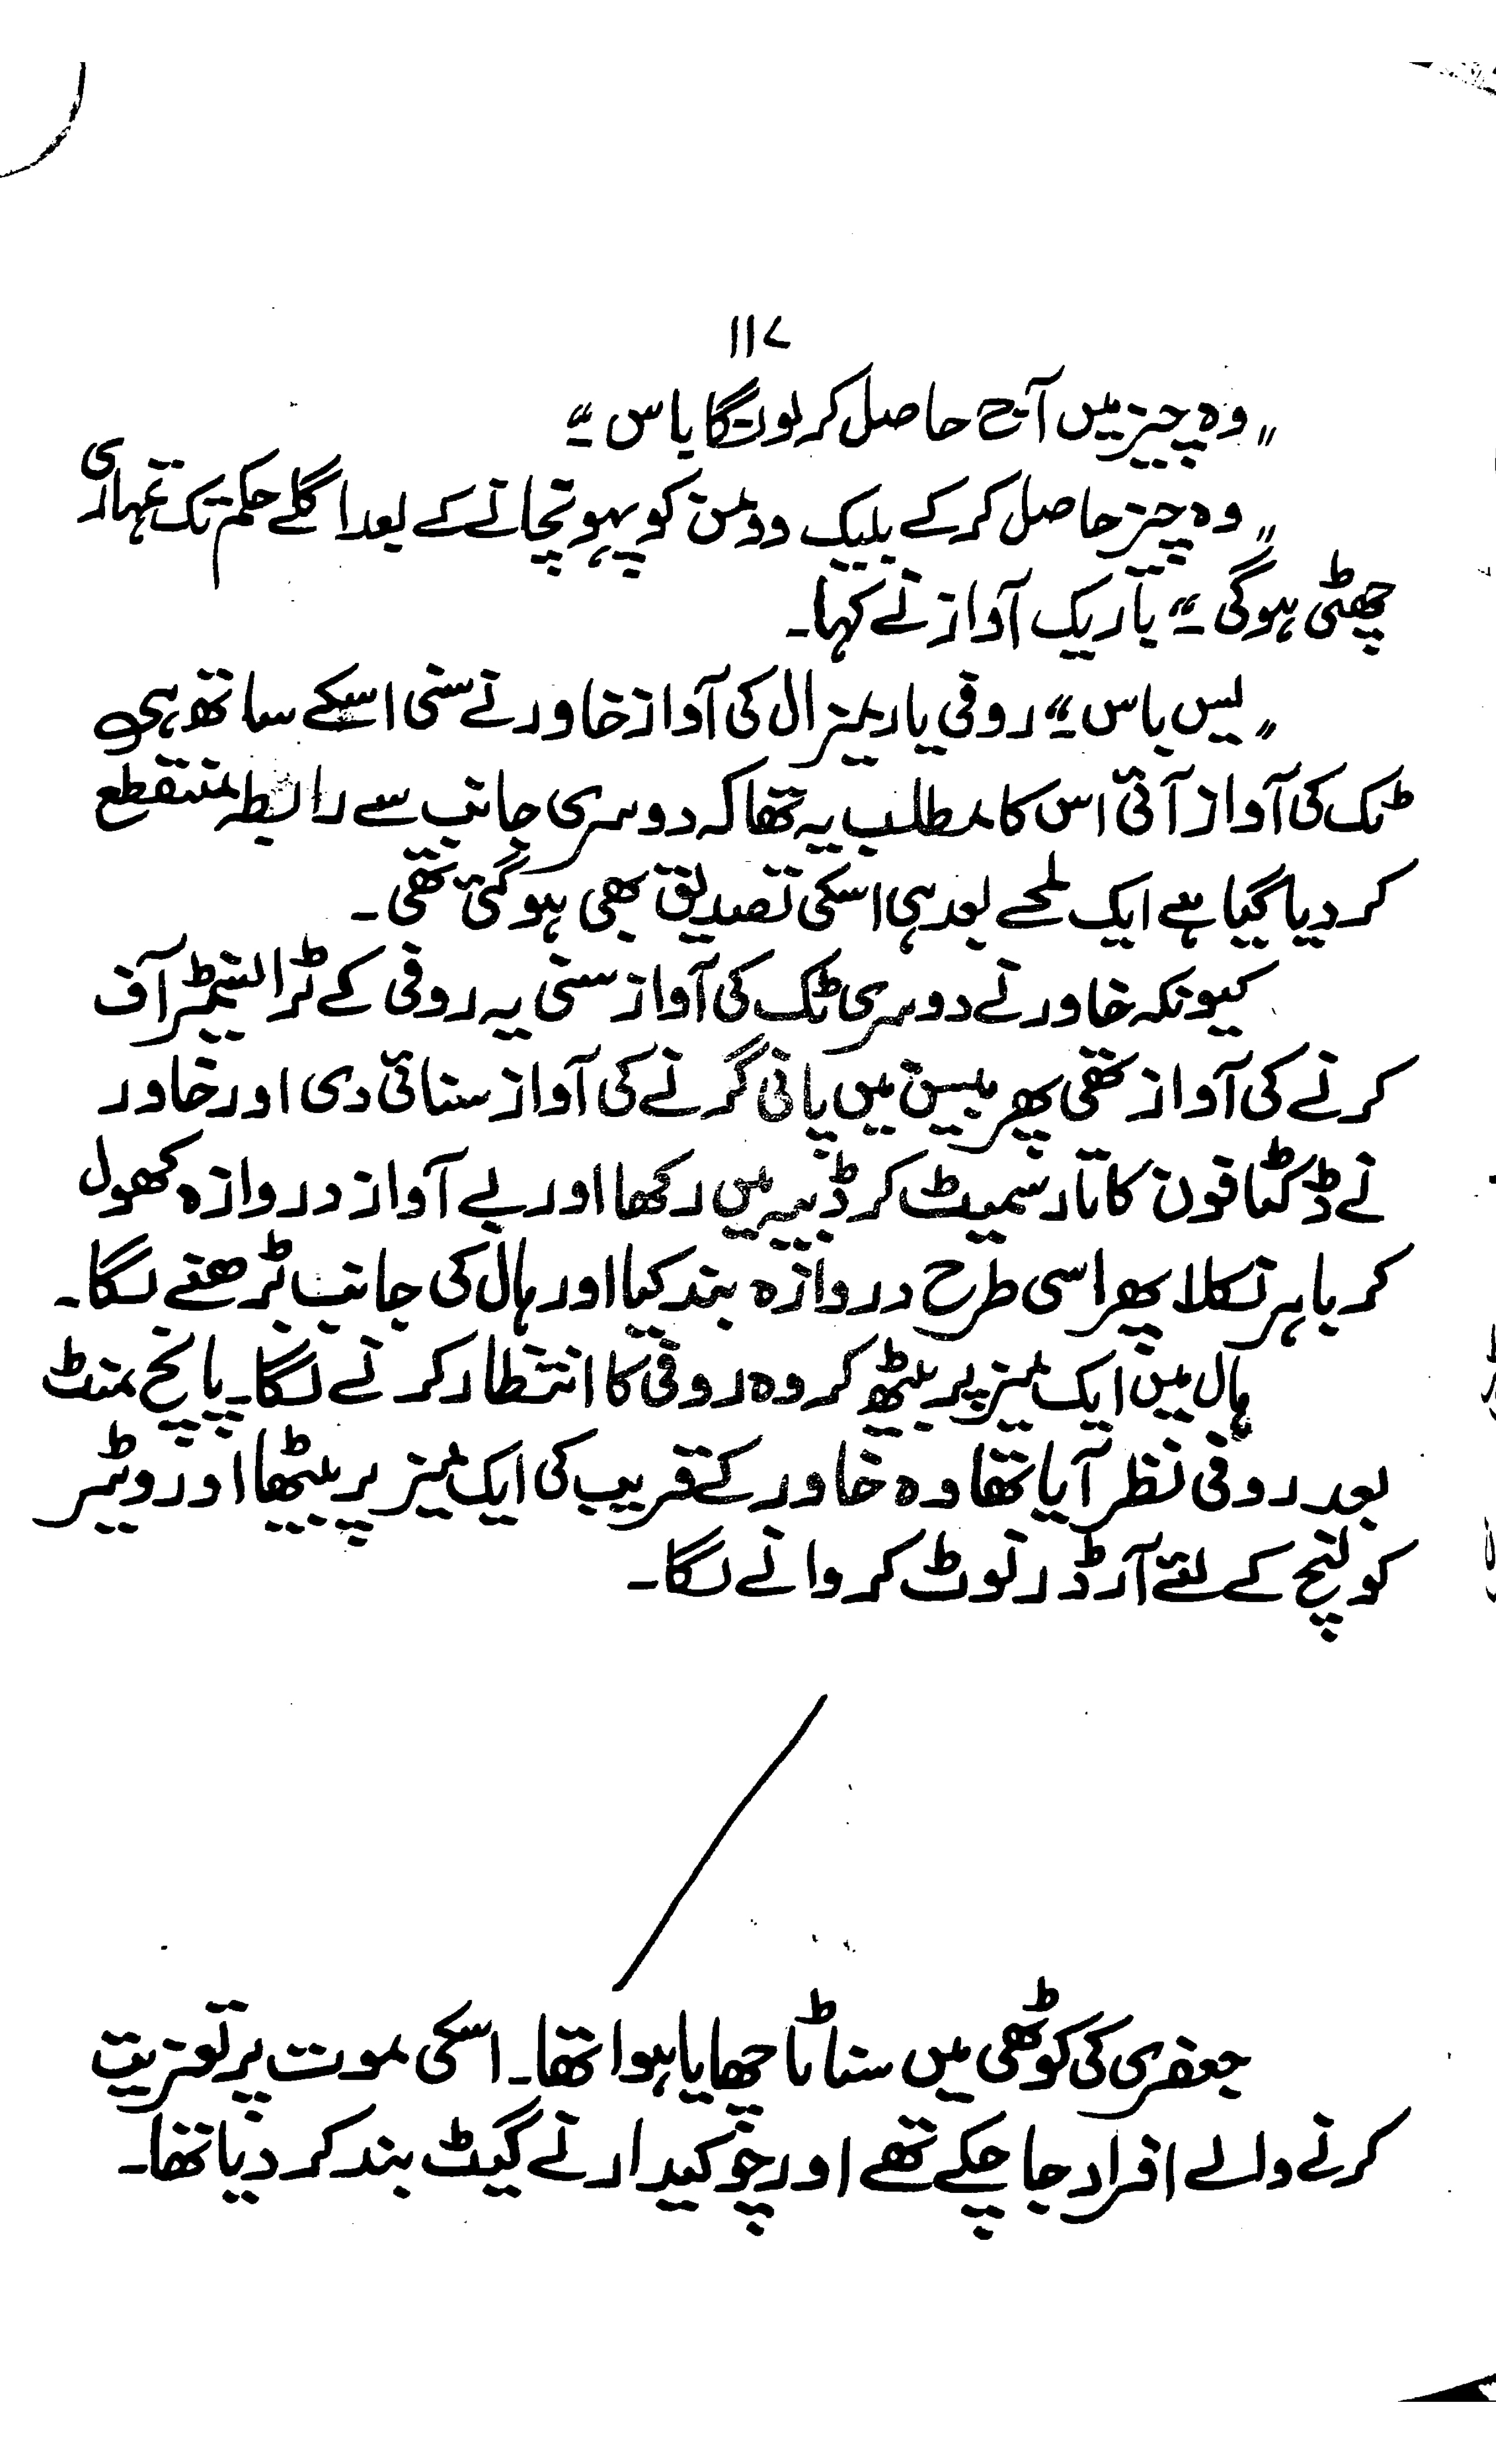 ۱۱۷
„ وہ چیز میں آج حاصل کر لونگا باس ۔“
„ وہ چیز حاصل کر کے بلیک وومن کو پہونچانے کے بعد اگلے حکم تک تمہاری
چھٹی ہوگی ۔“ باریک آواز نے کہا۔
„ یس باس ۔“ روفی یا ریمنرال کی آواز خاور نے سنی اسکے ساتھ ہی
ٹک کی آواز آئی اس کا مطلب یہ تھا کہ دوسری جانب سے رابطہ منتقطع
کر دیا گیا ہے ایک لمحے بعد ہی اسکی تصدیق بھی ہو گئی تھی۔
کیونکہ خاور نے دوسری ٹک کی آواز سنی یہ روفی کے ٹرانسمیٹر آف
کرنے کی آواز تھی پھر بیسن میں پانی گرنے کی آواز سنائی دی اور خاور
نے ڈکٹافون کا تار سمیٹ کر ڈبیہ میں رکھا اور بے آواز دروازہ کھول
کر باہر نکلا پھر اسی طرح دروازہ بند کیا اور ہال کی جانب بڑھنے لگا۔
ہال میں ایک میز پر بیٹھ کر وہ روفی کا انتظار کرنے لگا۔ پانچ منٹ
بعد روفی نظر آیا تھا وہ خاور کے قریب کی ایک میز پر بیٹھا اور ویٹر
کو لنچ کے لئے آرڈر نوٹ کروانے لگا۔
جعفری کی کوٹھی میں سناٹا چھایا ہوا تھا۔ اسکی موت پر تعزیت
کرنے والے افراد جا چکے تھے اور چوکیدار نے گیٹ بند کر دیا تھا۔